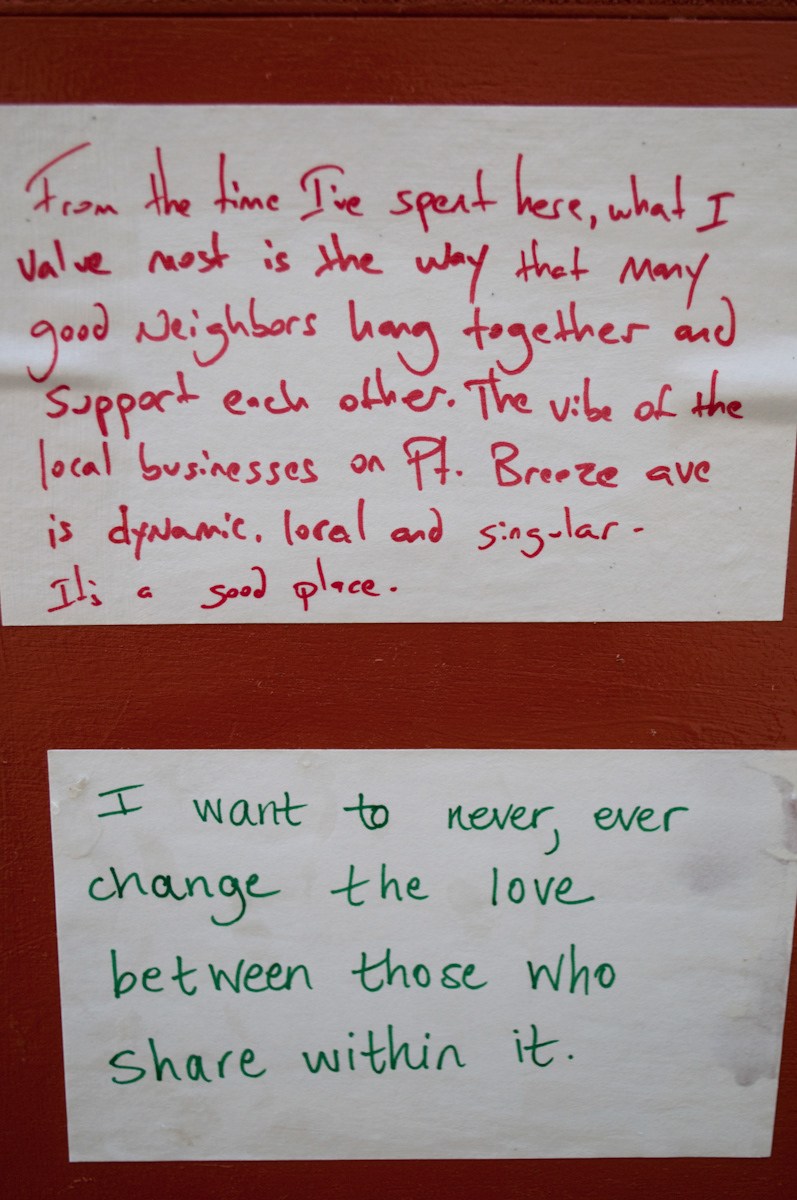 From the time I've spent here, what I
value most is the way that many
good Neighbors hang together and
support each other. The vibe of the
local businesses on Pt. Breeze ave
is dynamic. local and singular-
It's a good place.
I want to never, ever
change the love
between those who
share within it.